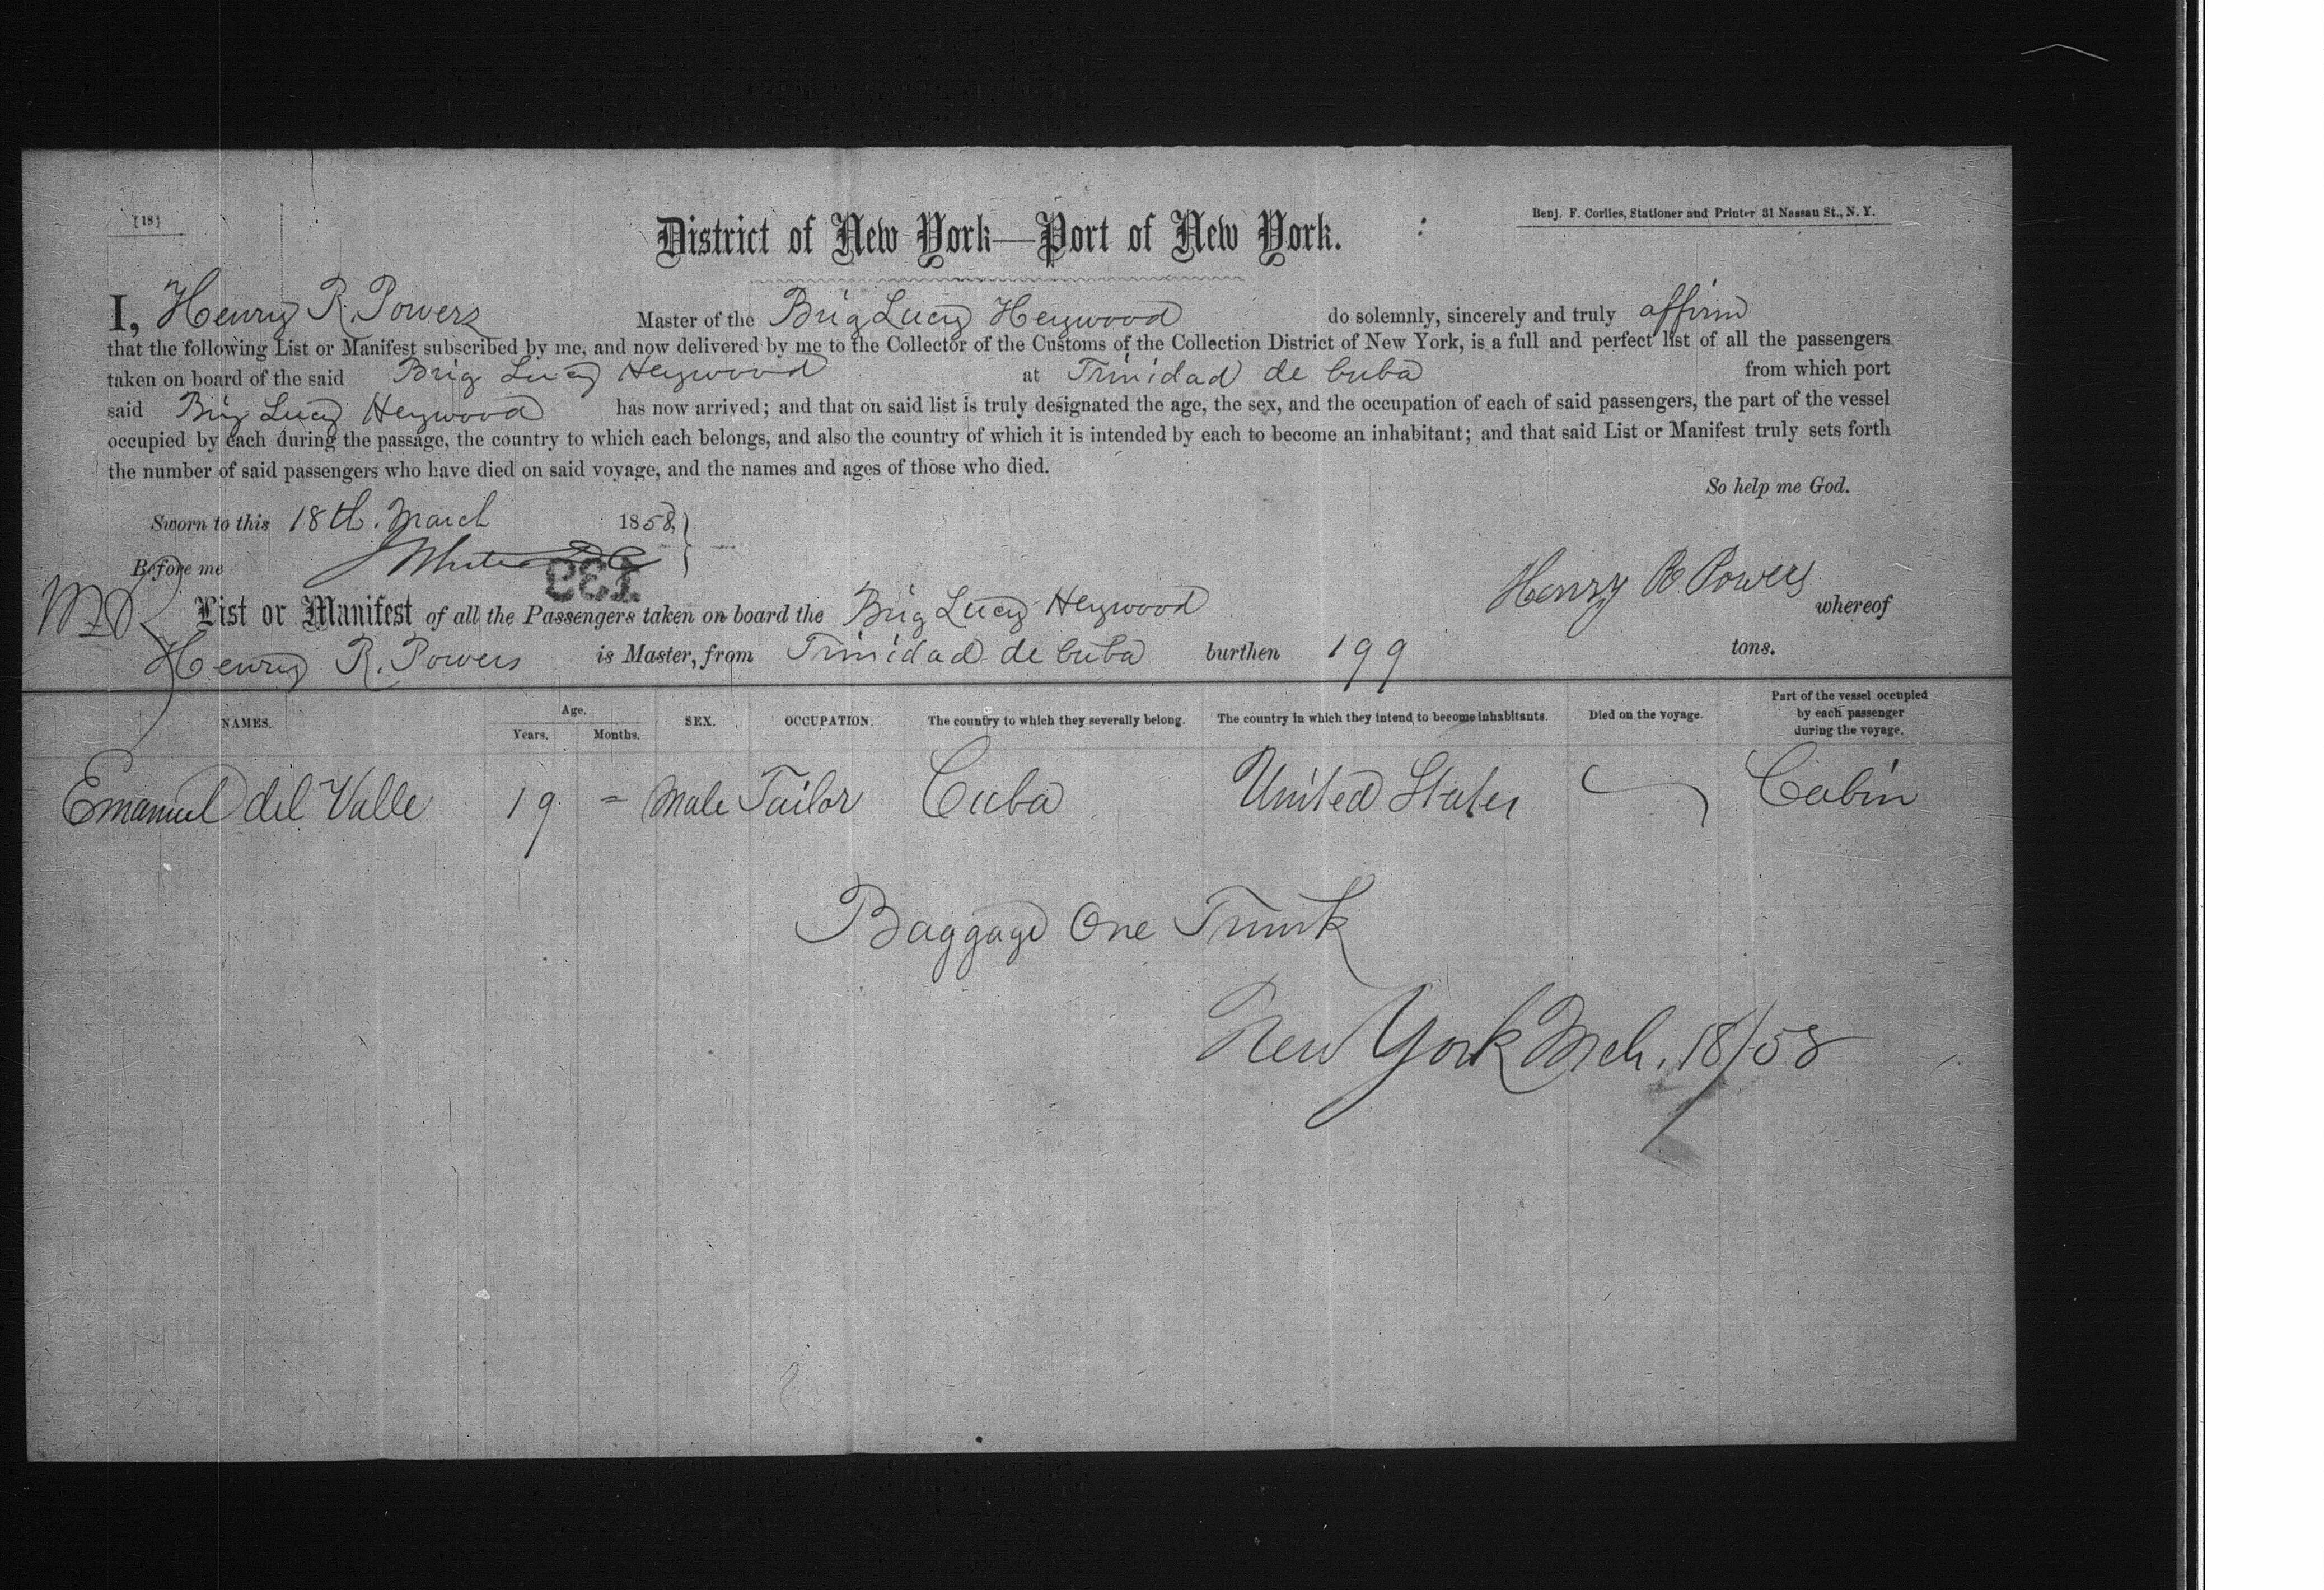 [18]
Benj. F. Corlies, Stationer and Printer 31 Nassau St., N. Y.
District of New York—Port of New York.
I, Henry R. Powers Master of the Brig Lucy Heywood do solemnly, sincerely and truly affirm
that the following List or Manifest subscribed by me, and now delivered by me to the Collector of the Customs of the Collection District of New York, is a full and perfect list of all the passengers
taken on board of the said Brig Lucy Heywood at Trinidad de Cuba from which port
said Brig Lucy Heywood has now arrived; and that on said list is truly designated the age, the sex, and the occupation of each of said passengers, the part of the vessel
occupied by each during the passage, the country to which each belongs, and also the country of which it is intended by each to become an inhabitant; and that said List or Manifest truly sets forth
the number of said passengers who have died on said voyage, and the names and ages of those who died.
So help me God.
Sworn to this 18th. March 1858
Before me
Henry R Powers
List or Manifest of all the Passengers taken on board the Brig Lucy Heywood whereof
Henry R. Powers is Master, from Trinidad de Cuba burthen 199 tons.
NAMES. Age. Years. Months. SEX. OCCUPATION. The country to which they severally belong. The country in which they intend to become inhabitants. Died on the voyage. Part of the vessel occupied by each passenger during the voyage.
Emanuel del Valle 19 = Male Tailor Cuba United States Cabin
Baggage One Trunk
New York Mch. 18/58